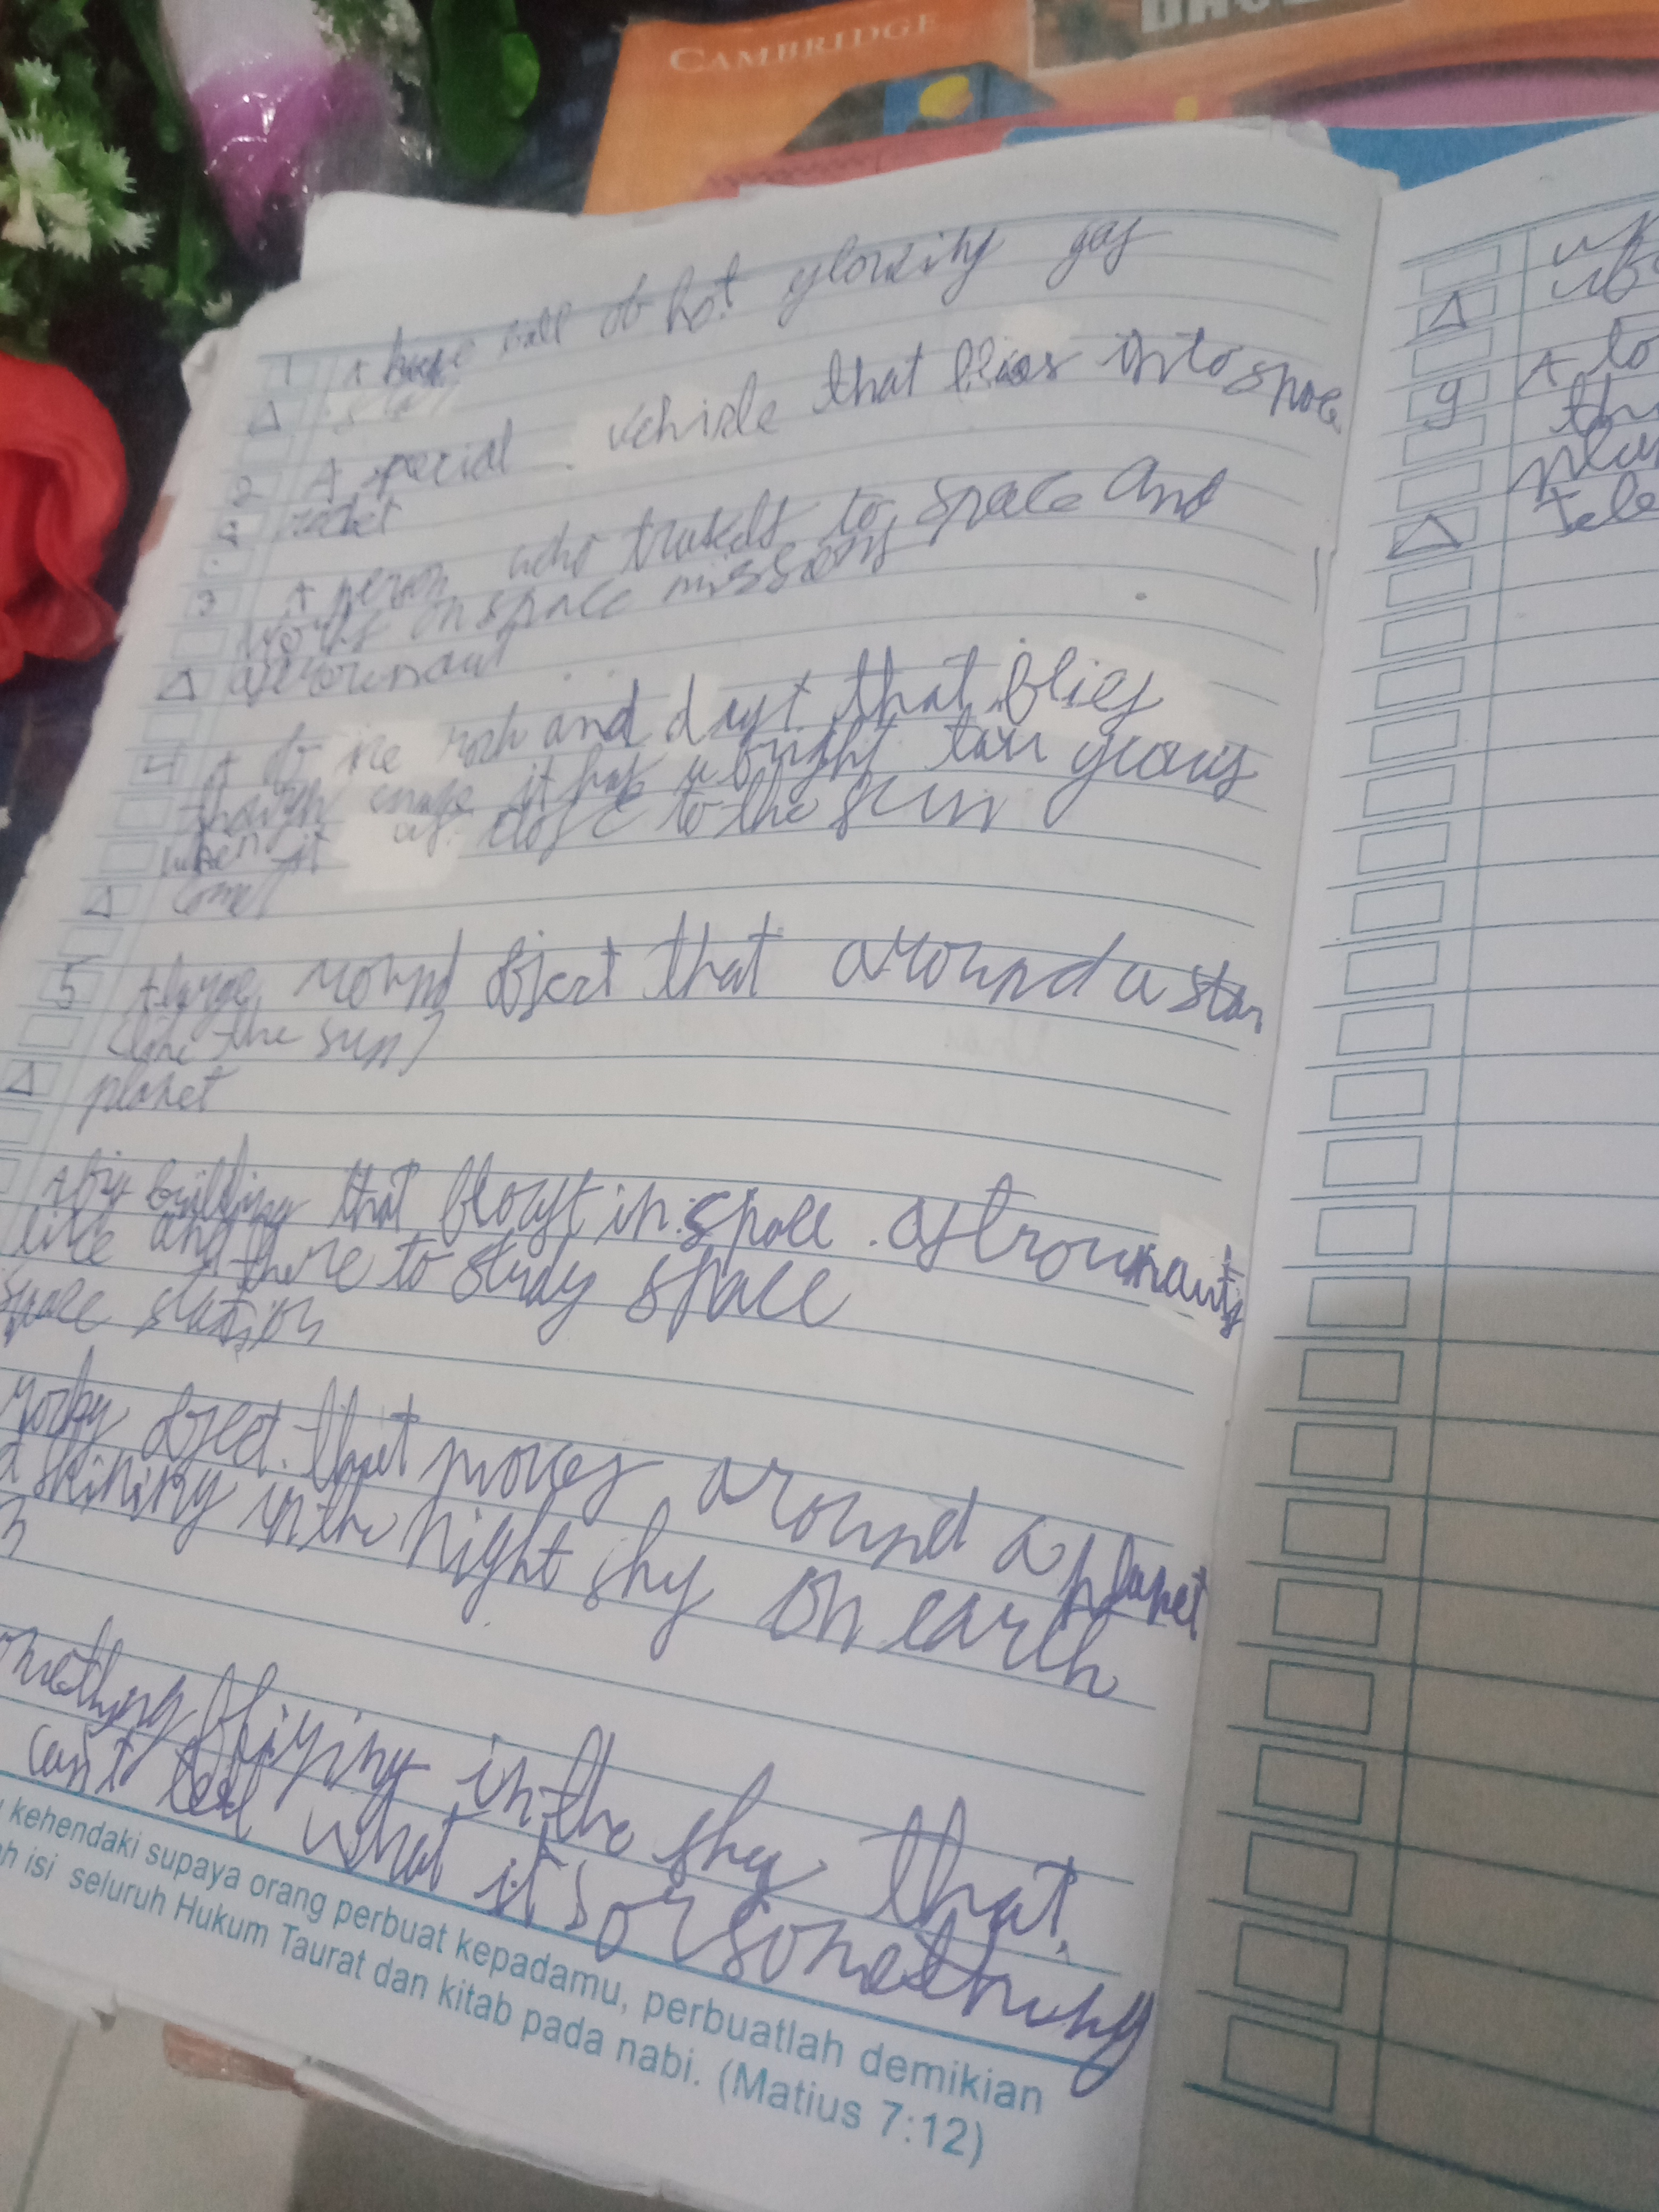 CAMBRIDGE
1 A huge ball of hot glowing gas
star
2 A special vehicle that flies into space
rocket
3 A person who travels to space and
works on space missions
astrounaut
4 A of ice rock and dust that flies
though it has a bright tail grows
when it as close to the sun
comet
5 A large round object that around a star
(like the sun)
planet
A big building that floast in space. astrounauts
live and there to study space
space station
rocky object that moves around a planet
shining in the night sky on earth
omething fliying in the sky that
can't tell what it's or something
kehendaki supaya orang perbuat kepadamu, perbuatlah demikian
ah isi seluruh Hukum Taurat dan kitab pada nabi. (Matius 7:12)
9 A to
th
Tele